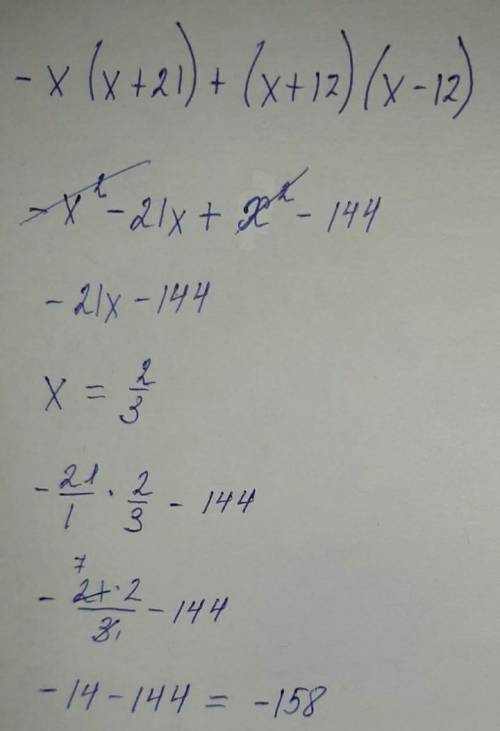 -x(x+21)+(x+12)(x-12)
-x²-21x+x²-144
-21x-144
x = 2/3
-21/1 · 2/3 - 144
-7 21·2/3 1 - 144
-14-144 = -158